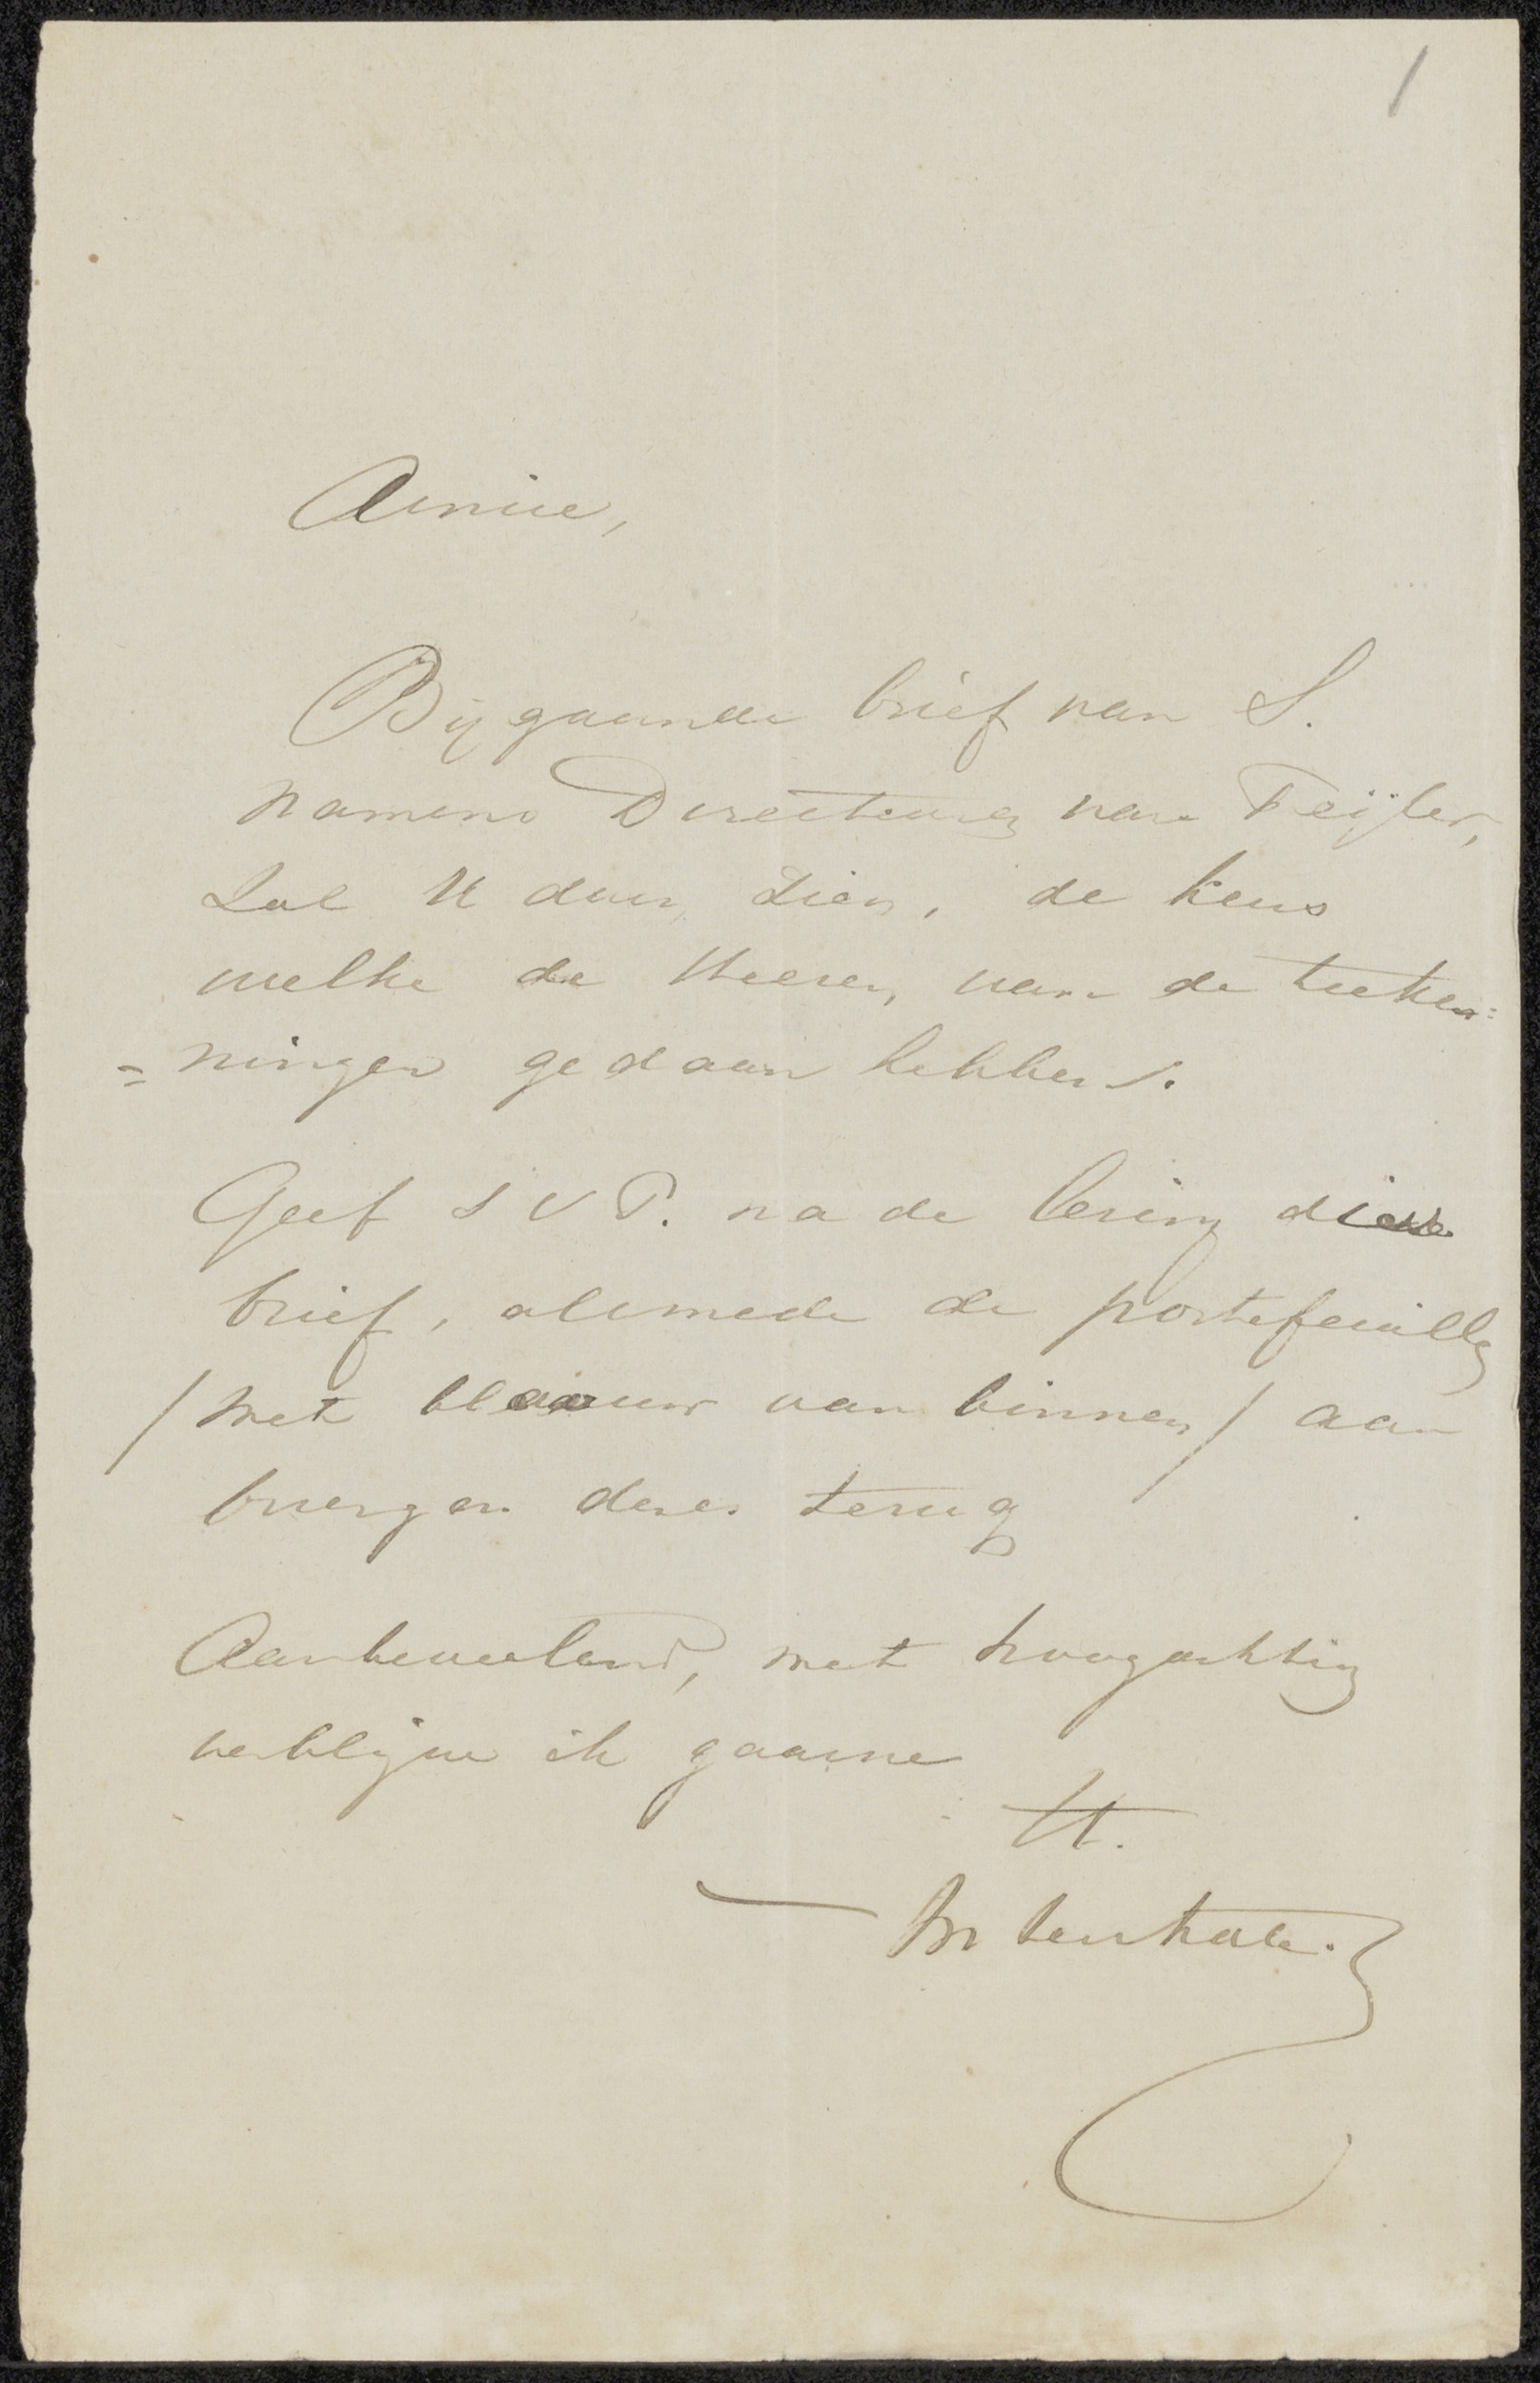 1
Amice,
Bijgaande brief van S.
namens Directeuren van Teijler,
Zal U doen zien, de keus
welke de Heeren van de teeken=
=ningen gedaan hebben.
Geef S V P. na de lezing dien
brief, alsmede de portefeuille
/ met blaauw van binnen / aan
brenger dezes terug
Aanbevelend, met hoogachting
verblijve ik gaarne
H.
Ten Kate.